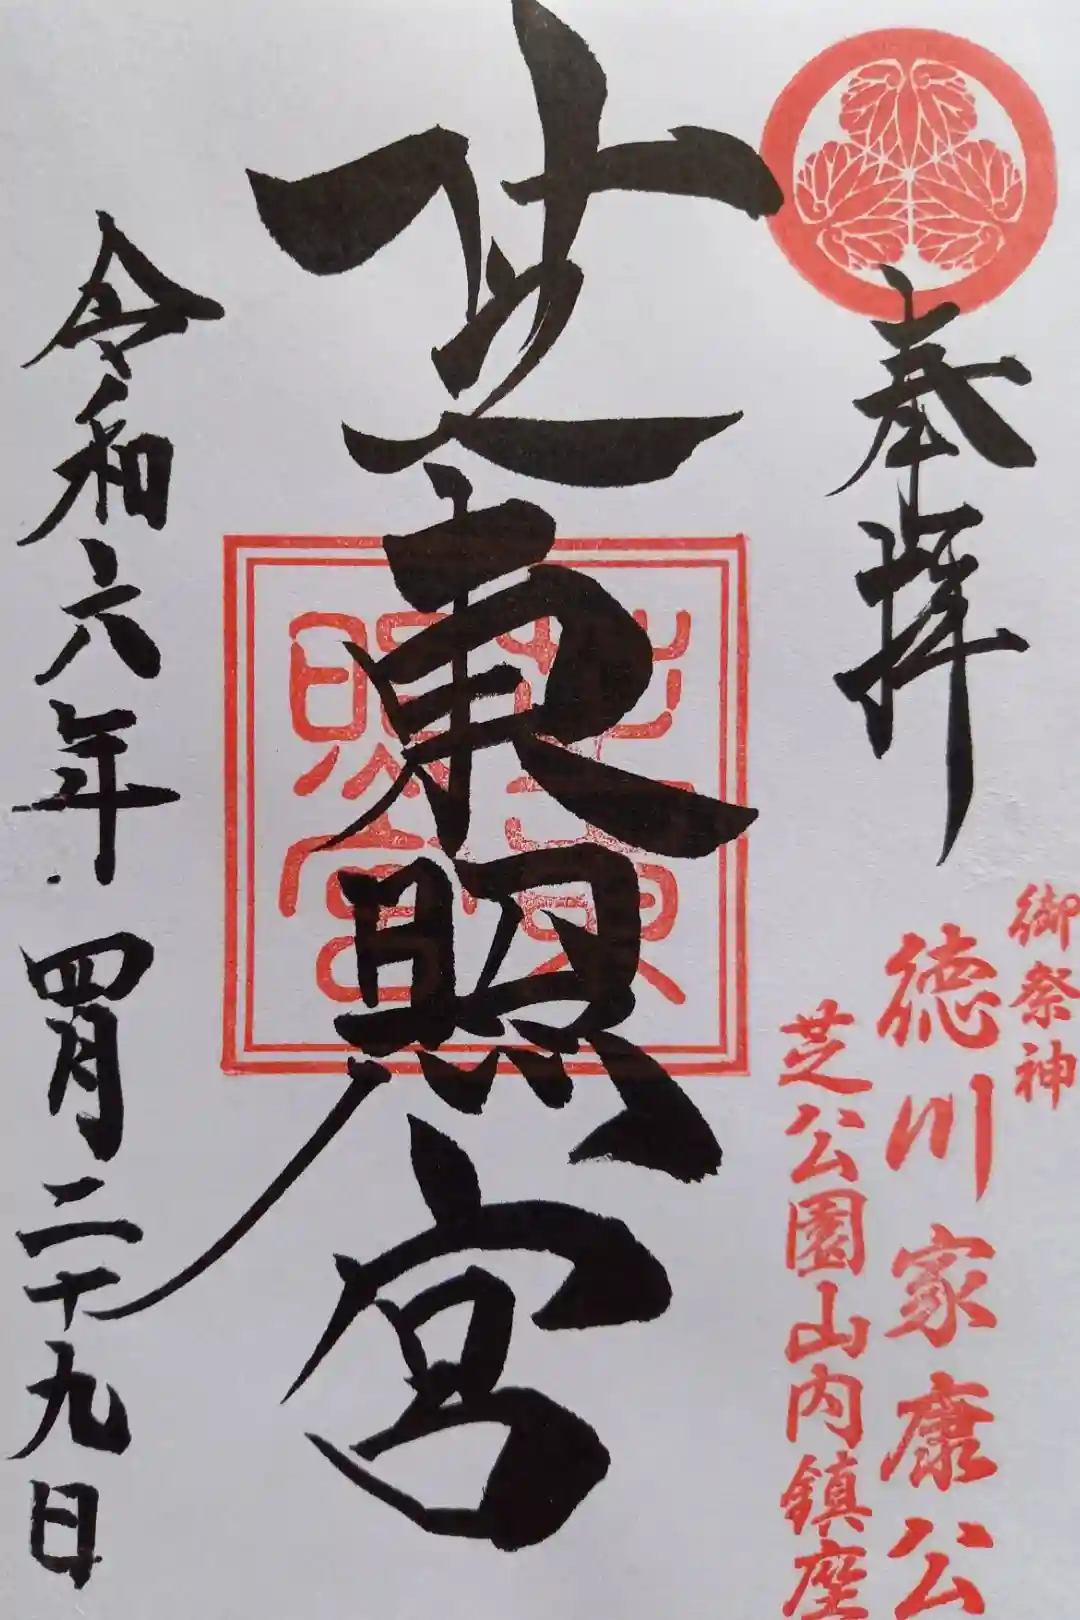 奉拝
御祭神
徳川家康公
芝公園山内鎮座
芝東照宮
芝東照宮
令和六年四月二十九日